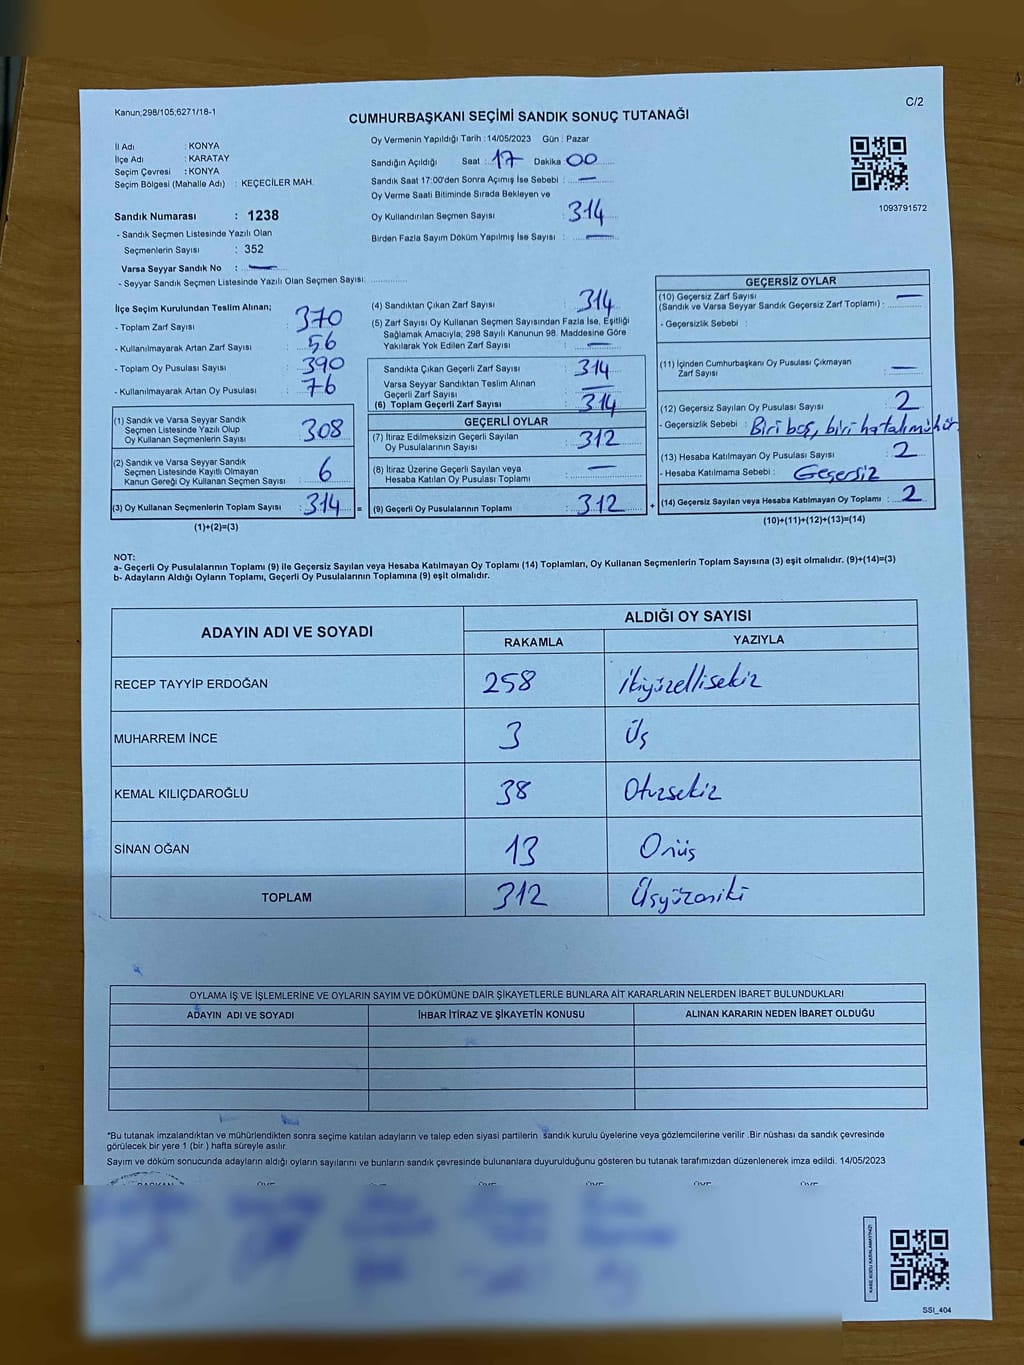 Kanun;298/105;6271/18-1
C/2
CUMHURBAŞKANI SEÇİMİ SANDIK SONUÇ TUTANAĞI
İl Adı : KONYA
İlçe Adı : KARATAY
Seçim Çevresi : KONYA
Seçim Bölgesi (Mahalle Adı) : KEÇECİLER MAH.
Sandık Numarası : 1238
- Sandık Seçmen Listesinde Yazılı Olan
Seçmenlerin Sayısı : 352
Varsa Seyyar Sandık No : —
- Seyyar Sandık Seçmen Listesinde Yazılı Olan Seçmen Sayısı: ..............
Oy Vermenin Yapıldığı Tarih : 14/05/2023 Gün : Pazar
Sandığın Açıldığı Saat : 17 Dakika 00
Sandık Saat 17:00'den Sonra Açımış İse Sebebi : —
Oy Verme Saati Bitiminde Sırada Bekleyen ve
Oy Kullandırılan Seçmen Sayısı : 314
Birden Fazla Sayım Döküm Yapılmış İse Sayısı : —
1093791572
İlçe Seçim Kurulundan Teslim Alınan;
- Toplam Zarf Sayısı : 370
- Kullanılmayarak Artan Zarf Sayısı : 56
- Toplam Oy Pusulası Sayısı : 390
- Kullanılmayarak Artan Oy Pusulası : 76
(1) Sandık ve Varsa Seyyar Sandık
Seçmen Listesinde Yazılı Olup
Oy Kullanan Seçmenlerin Sayısı : 308
(2) Sandık ve Varsa Seyyar Sandık
Seçmen Listesinde Kayıtlı Olmayan
Kanun Gereği Oy Kullanan Seçmen Sayısı : 6
(3) Oy Kullanan Seçmenlerin Toplam Sayısı : 314 =
(1)+(2)=(3)
(4) Sandıktan Çıkan Zarf Sayısı : 314
(5) Zarf Sayısı Oy Kullanan Seçmen Sayısından Fazla İse, Eşitliği
Sağlamak Amacıyla; 298 Sayılı Kanunun 98. Maddesine Göre
Yakılarak Yok Edilen Zarf Sayısı : —
Sandıkta Çıkan Geçerli Zarf Sayısı : 314
Varsa Seyyar Sandıktan Teslim Alınan
Geçerli Zarf Sayısı : —
(6) Toplam Geçerli Zarf Sayısı : 314
GEÇERLİ OYLAR
(7) İtiraz Edilmeksizin Geçerli Sayılan
Oy Pusulalarının Sayısı : 312
(8) İtiraz Üzerine Geçerli Sayılan veya
Hesaba Katılan Oy Pusulası Toplamı : —
(9) Geçerli Oy Pusulalarının Toplamı : 312 +
GEÇERSİZ OYLAR
(10) Geçersiz Zarf Sayısı
(Sandık ve Varsa Seyyar Sandık Geçersiz Zarf Toplamı) : —
- Geçersizlik Sebebi :
(11) İçinden Cumhurbaşkanı Oy Pusulası Çıkmayan
Zarf Sayısı : —
(12) Geçersiz Sayılan Oy Pusulası Sayısı : 2
- Geçersizlik Sebebi : Biri boş, biri hatalı mühür.
(13) Hesaba Katılmayan Oy Pusulası Sayısı : 2
- Hesaba Katılmama Sebebi : Geçersiz
(14) Geçersiz Sayılan veya Hesaba Katılmayan Oy Toplamı : 2
(10)+(11)+(12)+(13)=(14)
NOT:
a- Geçerli Oy Pusulalarının Toplamı (9) ile Geçersiz Sayılan veya Hesaba Katılmayan Oy Toplamı (14) Toplamları, Oy Kullanan Seçmenlerin Toplam Sayısına (3) eşit olmalıdır. (9)+(14)=(3)
b- Adayların Aldığı Oyların Toplamı, Geçerli Oy Pusulalarının Toplamına (9) eşit olmalıdır.
ADAYIN ADI VE SOYADI
ALDIĞI OY SAYISI
RAKAMLA YAZIYLA
RECEP TAYYİP ERDOĞAN 258 ikiyüzellisekiz
MUHARREM İNCE 3 Üç
KEMAL KILIÇDAROĞLU 38 Otuzsekiz
SİNAN OĞAN 13 Onüç
TOPLAM 312 Üçyüzoniki
OYLAMA İŞ VE İŞLEMLERİNE VE OYLARIN SAYIM VE DÖKÜMÜNE DAİR ŞİKAYETLERLE BUNLARA AİT KARARLARIN NELERDEN İBARET BULUNDUKLARI
ADAYIN ADI VE SOYADI İHBAR İTİRAZ VE ŞİKAYETİN KONUSU ALINAN KARARIN NEDEN İBARET OLDUĞU
*Bu tutanak imzalandıktan ve mühürlendikten sonra seçime katılan adayların ve talep eden siyasi partilerin sandık kurulu üyelerine veya gözlemcilerine verilir .Bir nüshası da sandık çevresinde
görülecek bir yere 1 (bir ) hafta süreyle asılır.
Sayım ve döküm sonucunda adayların aldığı oyların sayılarını ve bunların sandık çevresinde bulunanlara duyurulduğunu gösteren bu tutanak tarafımızdan düzenlenerek imza edildi. 14/05/2023
BAŞKAN ÜYE ÜYE ÜYE ÜYE ÜYE ÜYE
KARE KODU KARALAMAYINIZ!
SSI_404